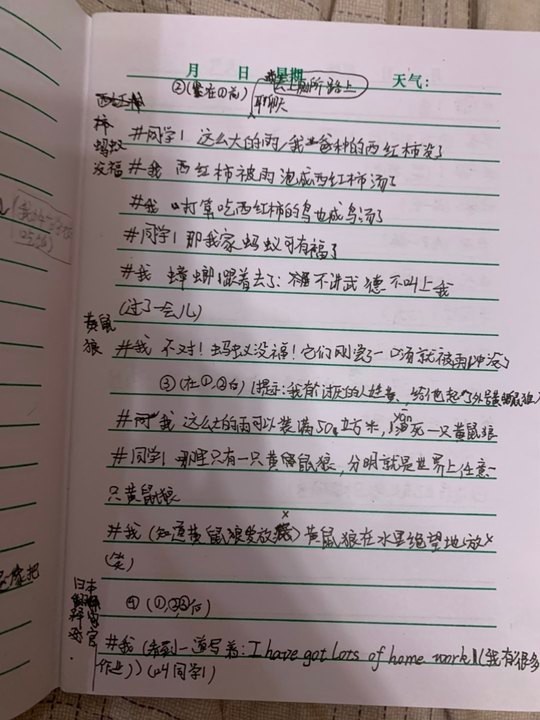 月 日 星期 天气：
②(鉴在①前) 上厕所路上
聊天
西红柿
蚂蚁
没福
#同学1 这么大的雨，我爸种的西红柿没了
#我 西红柿被雨泡成西红柿汤了
#我 打算吃西红柿的鸟也成鸟汤了
#同学1 那我家蚂蚁可有福了
#我 蟑螂跟着去了：不讲武德 不叫上我
(过了一会儿)
黄鼠
狼
#我 不对！蚂蚁没福！它们刚尝了一口汤就被雨冲没了
③(在①,②后) (提示：我有讨厌的人姓黄，给他起了外号
#我 这么大的雨可以装满50立方米，淹死一只黄鼠狼
yān
#同学1 那里只有一只黄鼠狼，分明就是世界上任意一
只黄鼠狼
#我 (知道黄鼠狼爱放x) 黄鼠狼在水里绝望地放x
(笑)
④ (①,②,③后)
日本
#我 (看到一道写着：I have got lots of home work！(我有很多
作业)) (叫同学1)